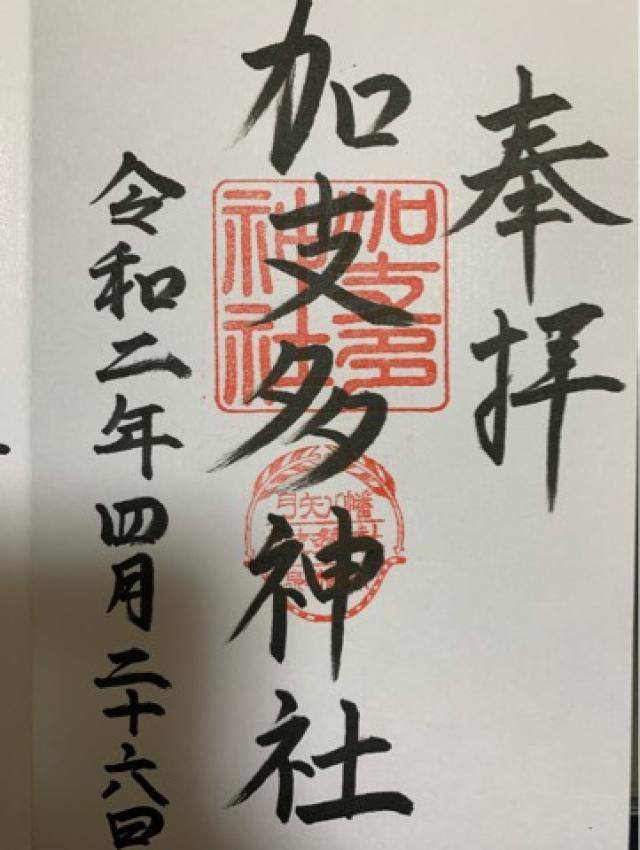 奉拝
加支多神社
加支多
神社
令和二年四月二十六日